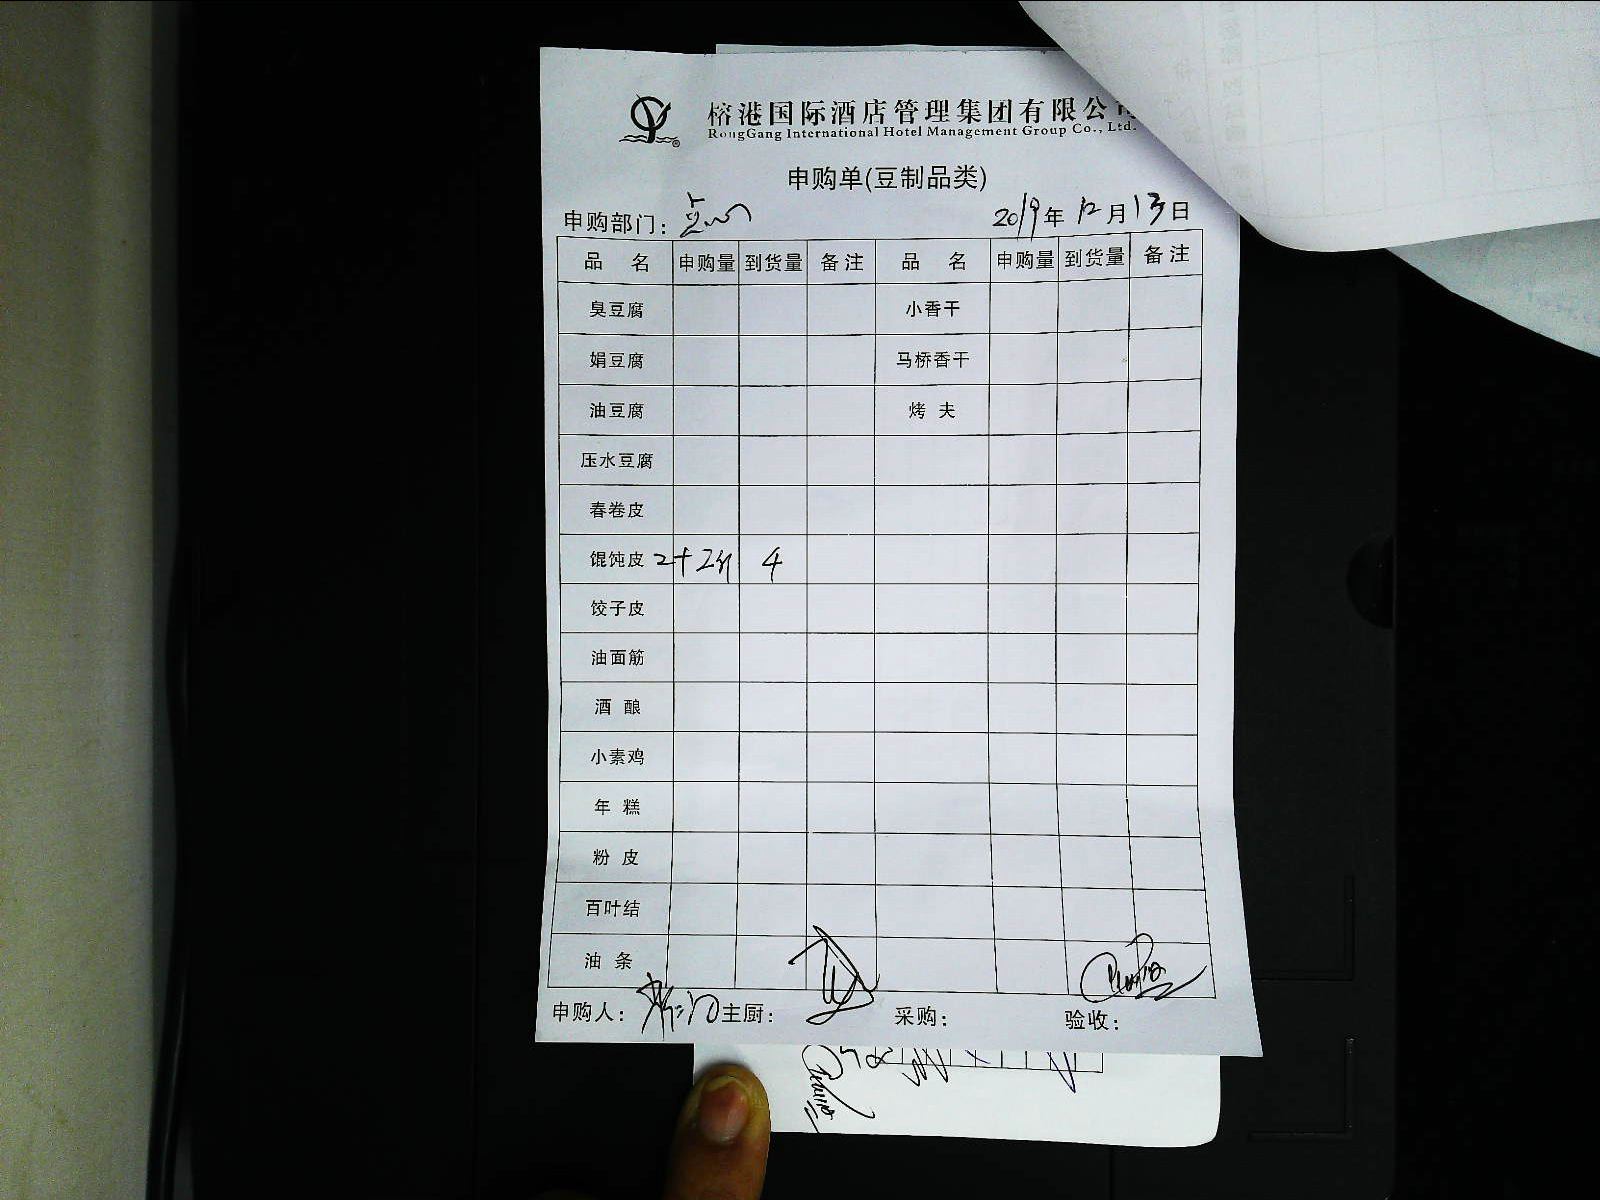 榕港国际酒店管理集团有限公
RongGang International Hotel Management Group Co., Ltd.
申购单(豆制品类)
申购部门: 2019年12月13日
品 名 申购量 到货量 备注 品 名 申购量 到货量 备注
臭豆腐 小香干
娟豆腐 马桥香干
油豆腐 烤 夫
压水豆腐
春卷皮
馄饨皮 2+2斤 4
饺子皮
油面筋
酒 酿
小素鸡
年 糕
粉 皮
百叶结
油 条
申购人: 主厨: 采购: 验收: